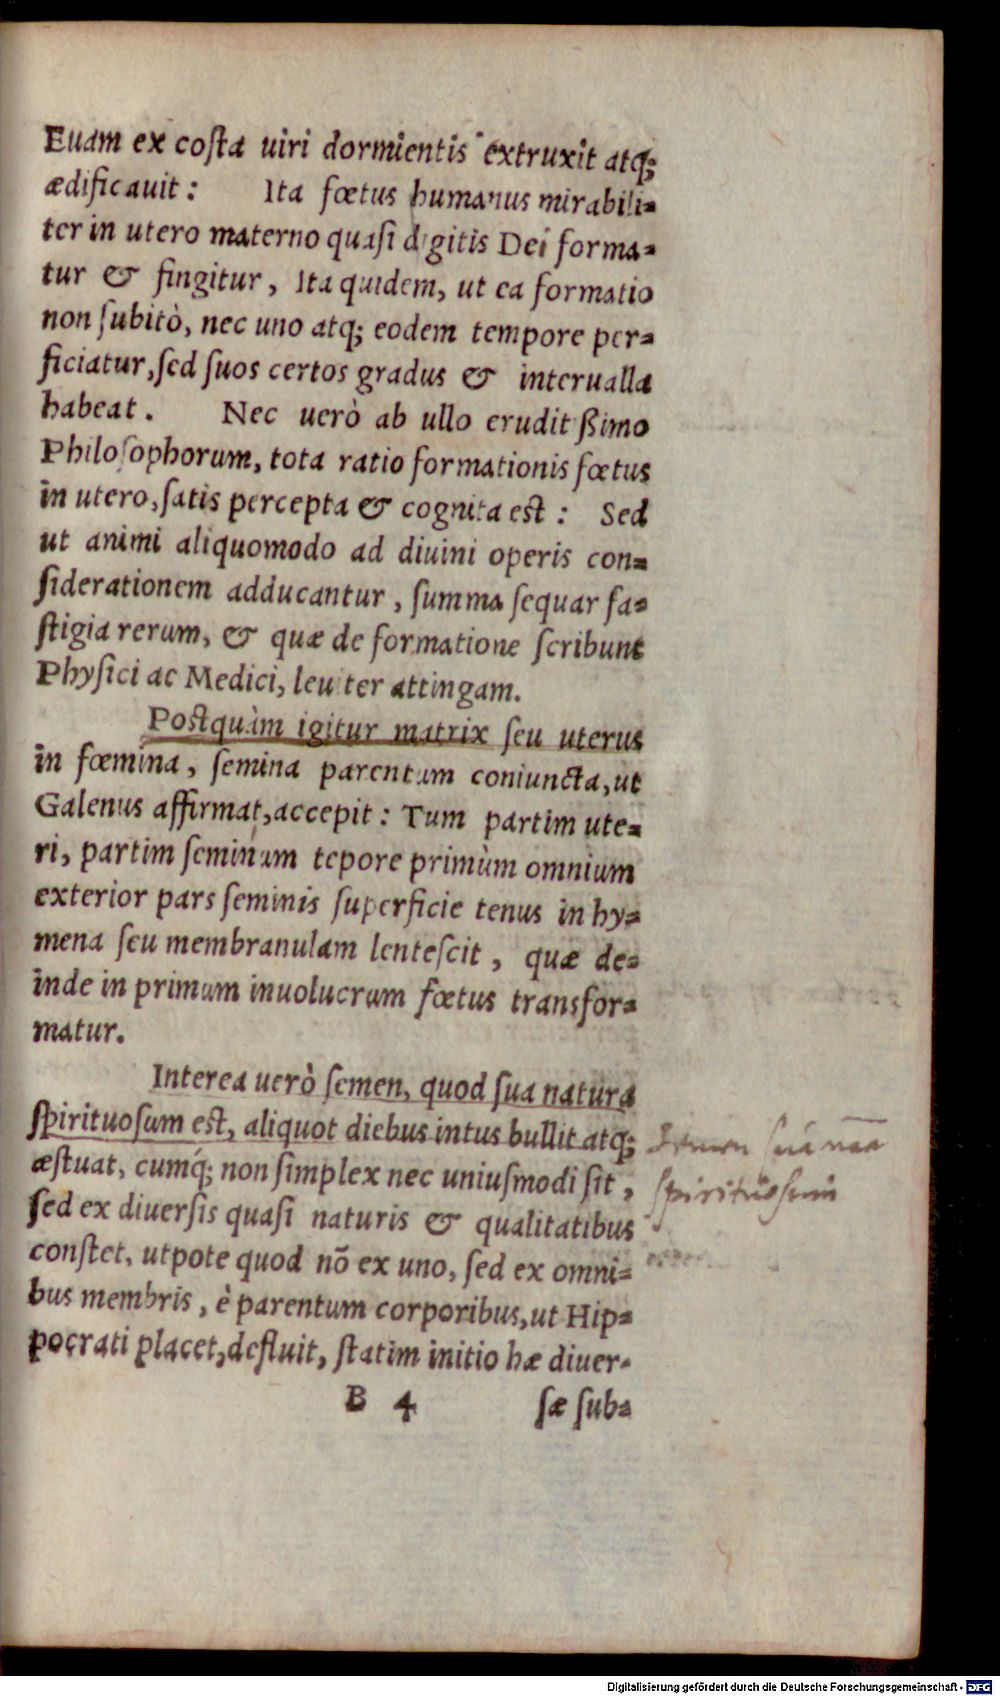 Euam ex coſta uiri dormientis extruxit atq;
ædificauit: Ita fœtus humanus mirabili=
ter in utero materno quaſi digitis Dei forma=
tur & fingitur, Ita quidem, ut ea formatio
non ſubitò, nec uno atq; eodem tempore per=
ficiatur, ſed ſuos certos gradus & interualla
habeat. Nec uerò ab ullo eruditißimo
Philoſophorum, tota ratio formationis fœtus
in utero, ſatis percepta & cognita eſt: Sed
ut animi aliquomodo ad diuini operis con=
ſiderationem adducantur, ſumma ſequar fa=
ſtigia rerum, & quæ de formatione ſcribunt
Phyſici ac Medici, leuiter attingam.
Poſtquàm igitur matrix ſeu uterus
in fœmina, ſemina parentum coniuncta, ut
Galenus affirmat, accepit: Tum partim ute=
ri, partim ſeminum tepore primùm omnium
exterior pars ſeminis ſuperficie tenus in hy=
mena ſeu membranulam lenteſcit, quæ de=
inde in primum inuolucrum fœtus transfor=
matur.
Interea uerò ſemen, quod ſua natura
ſpirituoſum eſt, aliquot diebus intus bullit atq;
æſtuat, cumq́; non ſimplex nec uniuſmodi ſit,
ſed ex diuerſis quaſi naturis & qualitatibus
conſtet, utpote quod nō ex uno, ſed ex omni=
bus membris, è parentum corporibus, ut Hip=
pocrati placet, defluit, ſtatim initio hæ diuer=
B 4 ſæ ſub=
ſua
ſpirituoſum
Digitalisierung gefördert durch die Deutsche Forschungsgemeinschaft - DFG